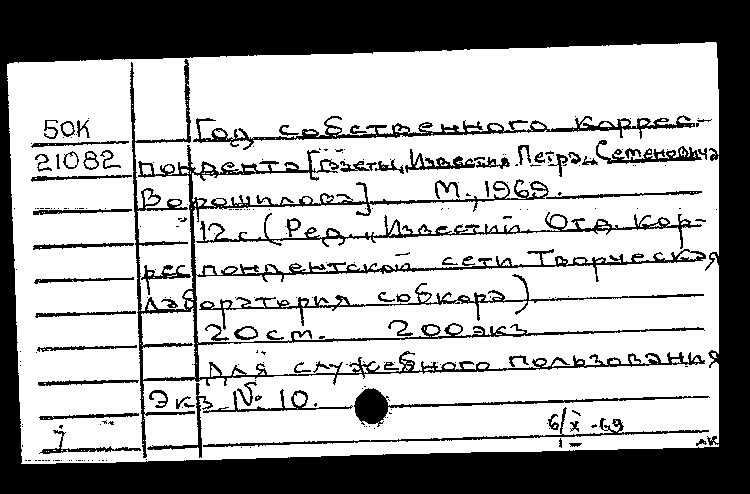 50К
Год собственного коррес-
21082
пондента [газеты „Известия" Петра Семеновича
Ворошилова]. М., 1969.
12 с. (Ред. „Известий". Отд. кор-
респондентской сети. Творческая
лаборатория собкора).
20 см. 200 экз.
Для служебного пользования
Экз. № 10.
6/X-69